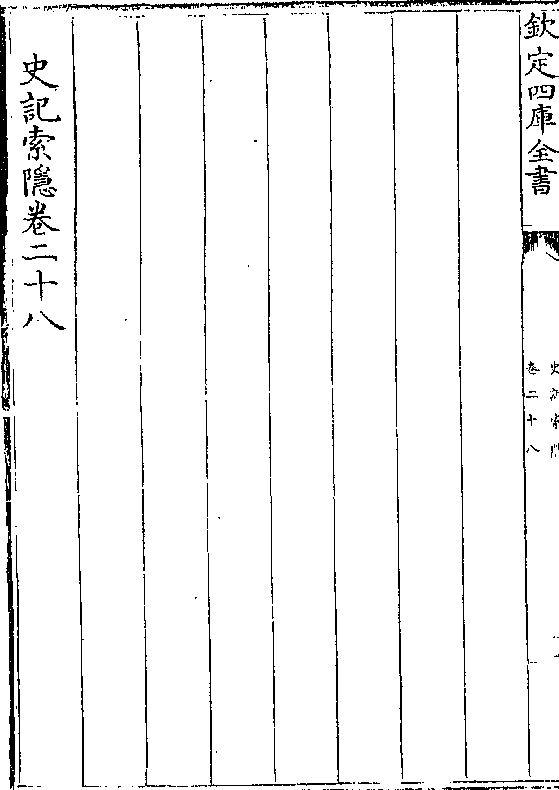 欽定四庫全書
史記索隱
卷二十八
史記索隱卷二十八